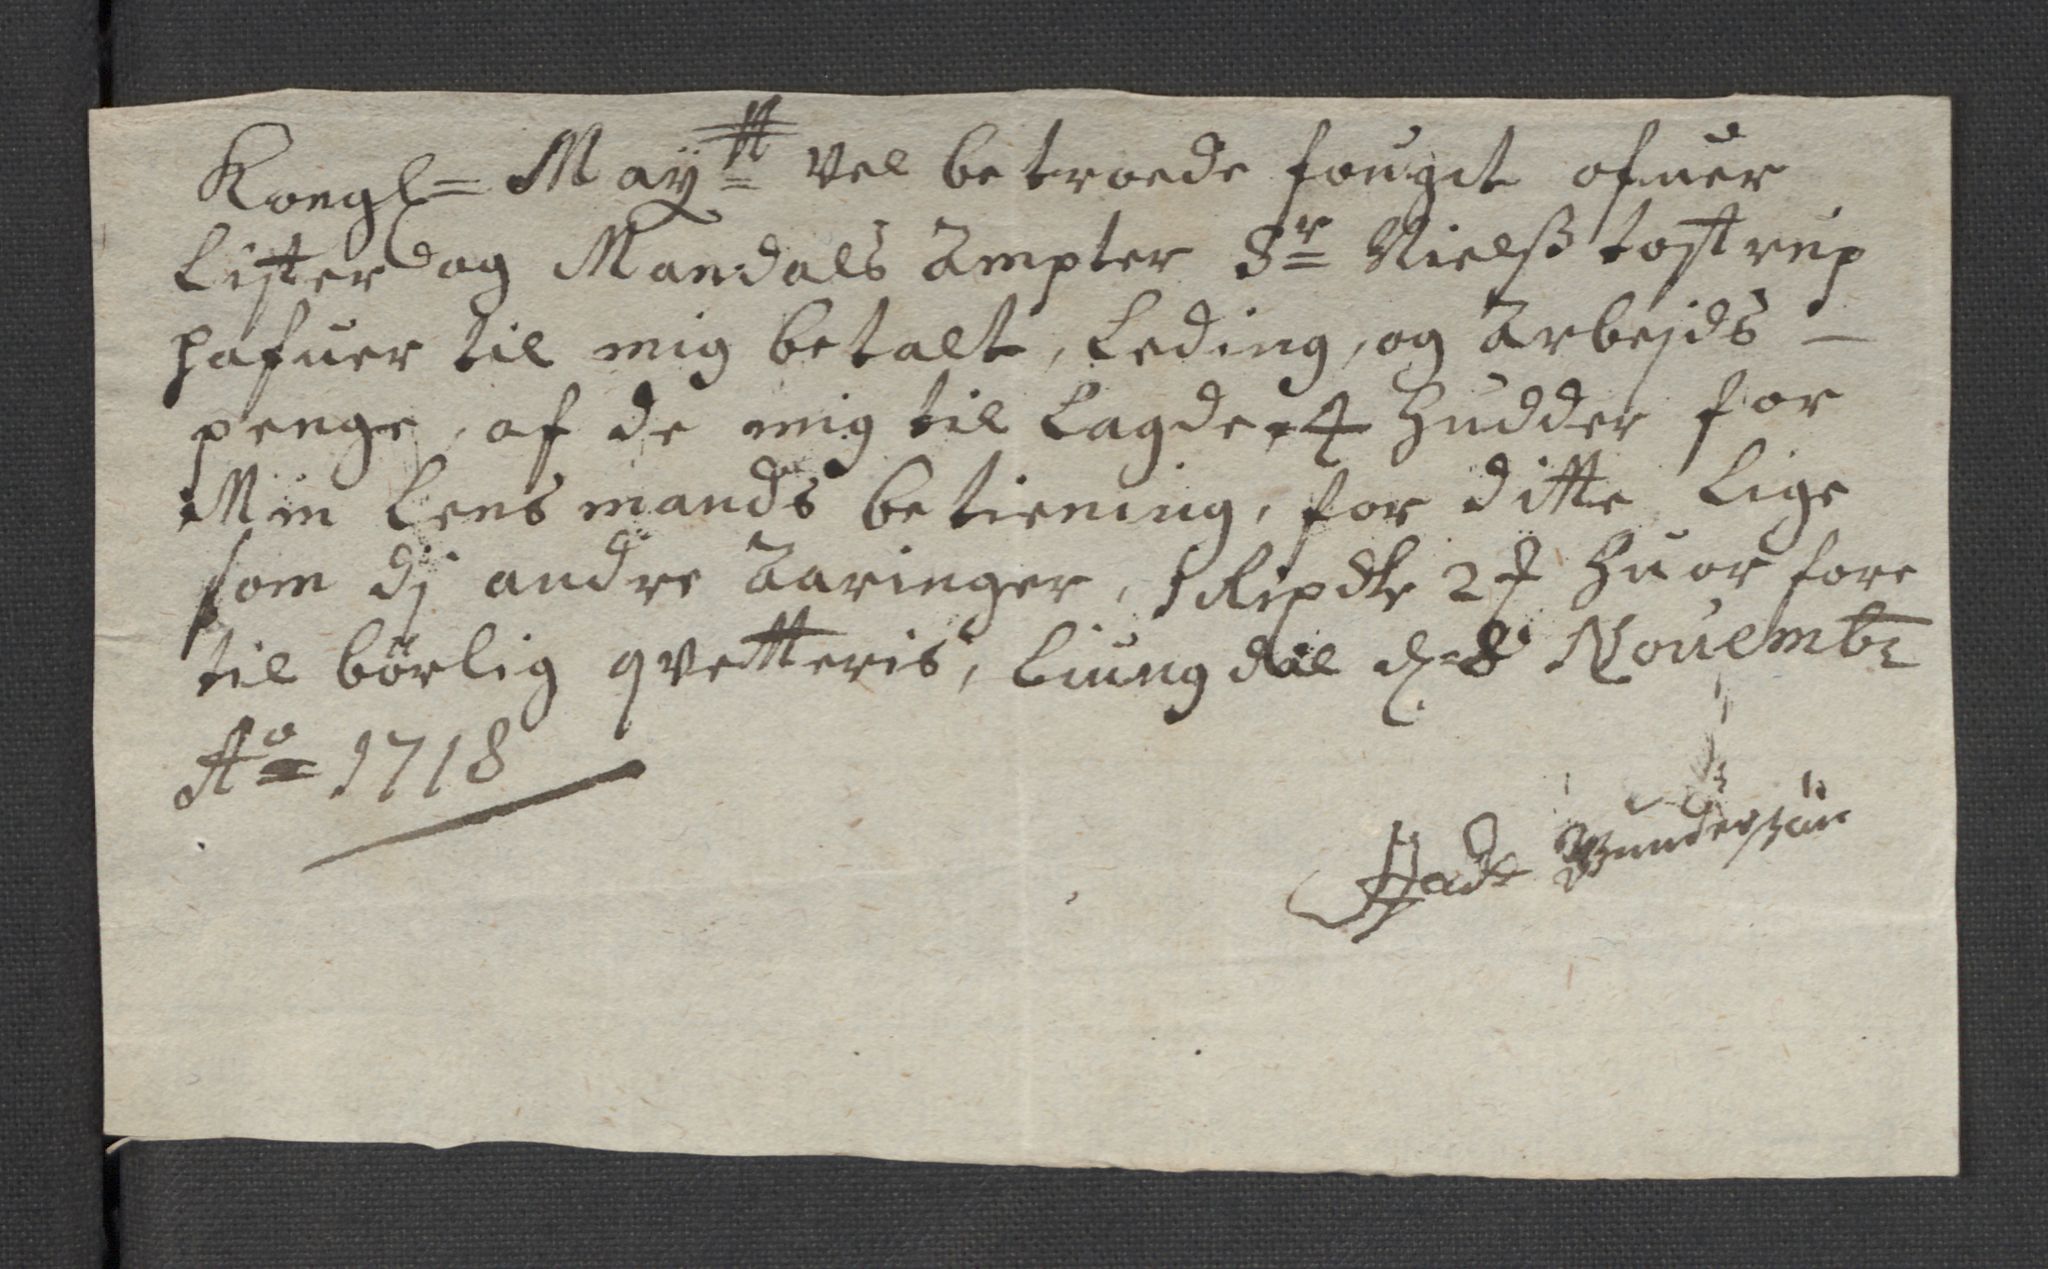 Kongl= May:tt vel betroede fougit ofuer
Lister og Mandals Ampter Sr= Nielsß tostrup
hafuer til mig betalt, Leding, og Arbejds –
penge, af de mig til Lagde 4 Hudder for
Min Lens mands betiening, for ditte Lige
som dj andre Aaringer, 2 Huor fore
til børlig qvetteris, Liungdal d. 8 Nouembr
Ao= 1718